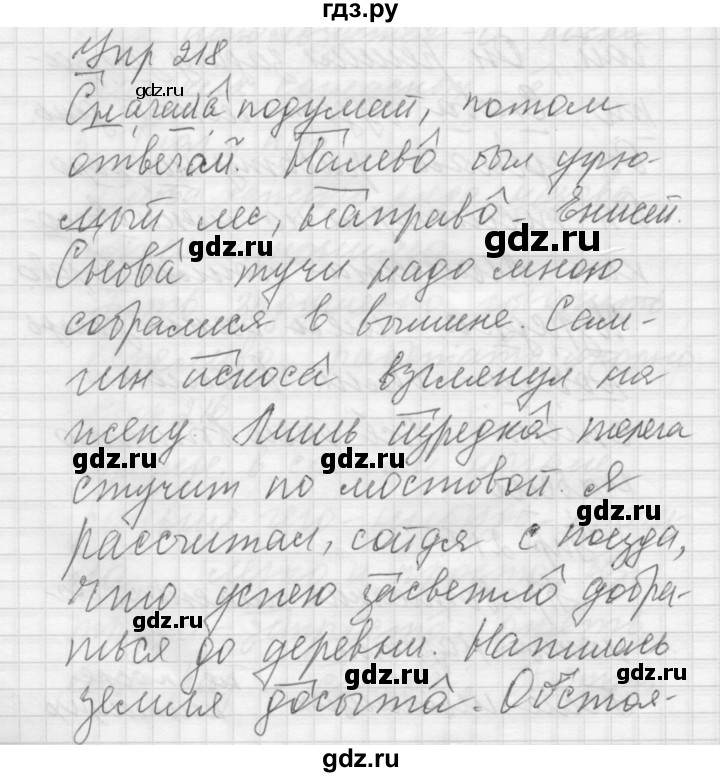 гдз.ру
Упр 218
gdz.ru
Сначала подумай, потом
отвечай. Налево был угрю-
мый лес, направо - Енисей.
gdz.ru gdz.ru
Снова тучи надо мною
собралися в вышине. Сам-
гин искоса взглянул на
жену. Лишь изредка телега
gdz.ru gdz.ru
стучит по мостовой. Я
gdz.ru
рассчитал, сойдя с поезда,
что успею засветло добра-
ться до деревни. Напилась
gdz.ru gdz.ru
земля досыта. Обстоя-
gdz.ru